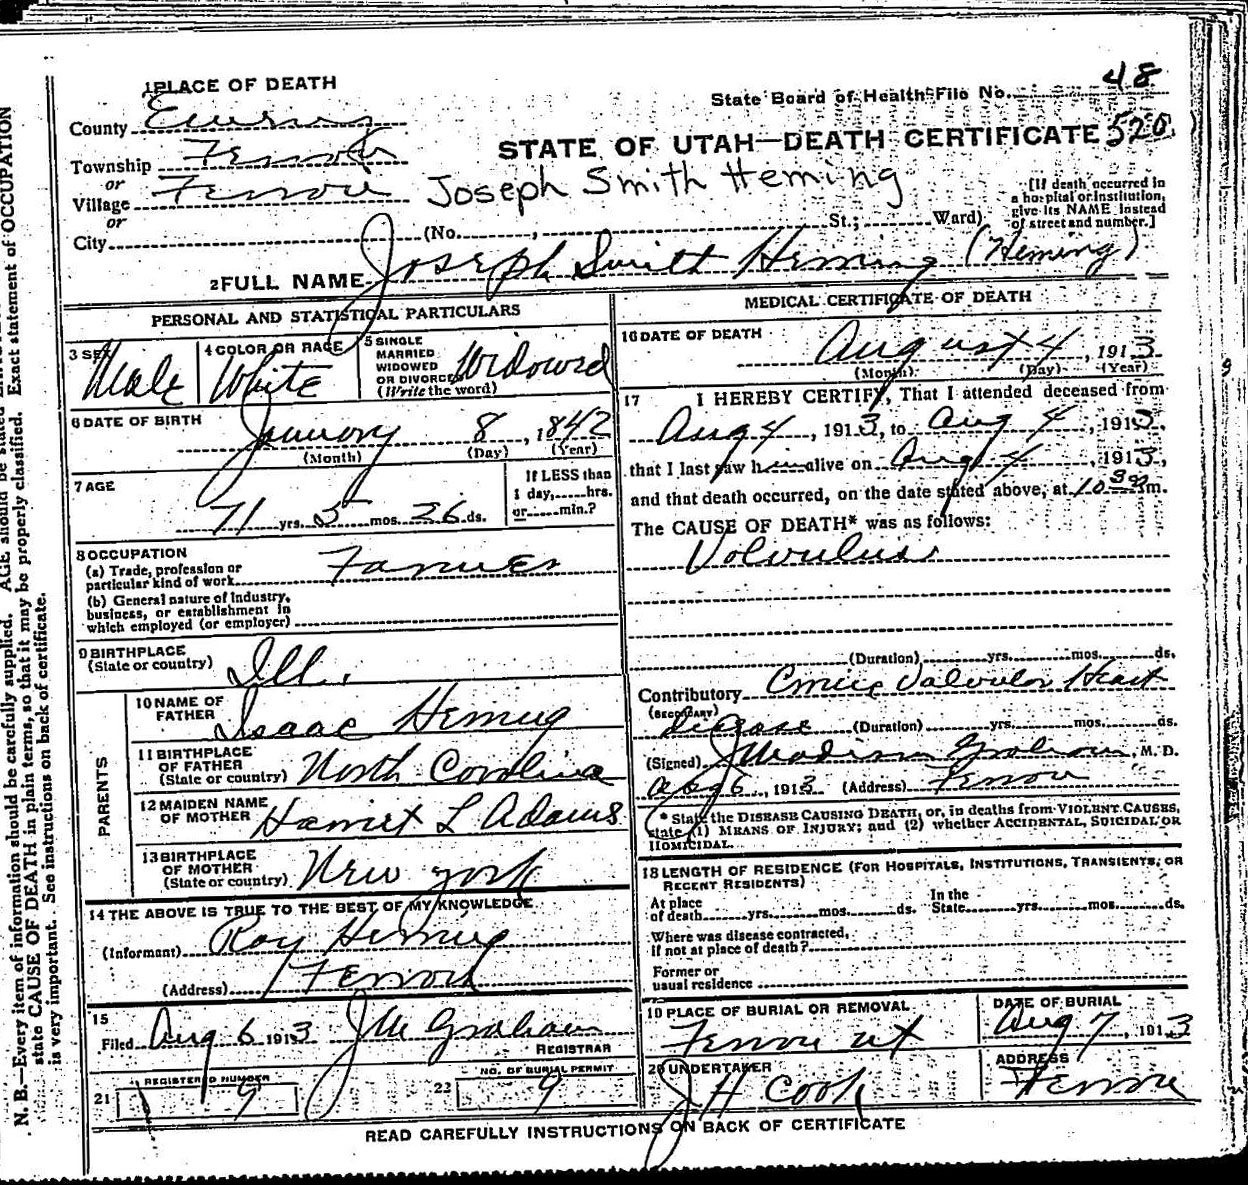 N. B.—Every item of information should be carefully supplied. AGE should be stated EXACTLY
state CAUSE OF DEATH in plain terms, so that it may be properly classified. Exact statement of OCCUPATION
is very important. See instructions on back of certificate.
1 PLACE OF DEATH
State Board of Health File No. 48
County
Township Ferron
STATE OF UTAH—DEATH CERTIFICATE 520
or
Village Ferron
Joseph Smith Heming
[If death occurred in
a hospital or institution,
give its NAME instead
of street and number.]
or
City (No. , St.; Ward)
2 FULL NAME Joseph Smith Heming (Heming)
PERSONAL AND STATISTICAL PARTICULARS
3 SEX Male
4 COLOR OR RACE White
5 SINGLE
MARRIED
WIDOWED
OR DIVORCED
(Write the word)
Widowed
6 DATE OF BIRTH
January 8, 1842
(Month) (Day) (Year)
7 AGE
71 yrs. 5 mos. 26 ds.
If LESS than
1 day, hrs.
or min.?
8 OCCUPATION
(a) Trade, profession or
particular kind of work Farmer
(b) General nature of industry,
business, or establishment in
which employed (or employer)
9 BIRTHPLACE
(State or country) Ill.
PARENTS
10 NAME OF
FATHER Isaac Heming
11 BIRTHPLACE
OF FATHER
(State or country) North Carolina
12 MAIDEN NAME
OF MOTHER Harriet L Adams
13 BIRTHPLACE
OF MOTHER
(State or country) New York
14 THE ABOVE IS TRUE TO THE BEST OF MY KNOWLEDGE
(Informant) Roy Heming
(Address) Ferron
15
Filed Aug 6 1913 J M Graham
REGISTRAR
21 REGISTERED NUMBER
9
22 NO. OF BURIAL PERMIT
9
MEDICAL CERTIFICATE OF DEATH
16 DATE OF DEATH
August 4, 1913.
(Month) (Day) (Year)
17 I HEREBY CERTIFY, That I attended deceased from
Aug 4, 1913, to Aug 4, 1913,
that I last saw him alive on Aug 4, 1913,
and that death occurred, on the date stated above, at 10 30 m.
The CAUSE OF DEATH* was as follows:
Volvulus
(Duration) yrs. mos. ds.
Contributory Valvular Heart
(SECONDARY)
disease (Duration) yrs. mos. ds.
(Signed) J Madison Graham, M. D.
Aug 6, 1913 (Address) Ferron
* State the DISEASE CAUSING DEATH, or, in deaths from VIOLENT CAUSES,
state (1) MEANS OF INJURY; and (2) whether ACCIDENTAL, SUICIDAL OR
HOMICIDAL.
18 LENGTH OF RESIDENCE (FOR HOSPITALS, INSTITUTIONS, TRANSIENTS, OR
RECENT RESIDENTS)
At place
of death yrs. mos. ds.
In the
State yrs. mos. ds.
Where was disease contracted,
if not at place of death?
Former or
usual residence
19 PLACE OF BURIAL OR REMOVAL
Ferron Ut
DATE OF BURIAL
Aug 7, 1913
20 UNDERTAKER
J H Cook
ADDRESS
Ferron
READ CAREFULLY INSTRUCTIONS ON BACK OF CERTIFICATE